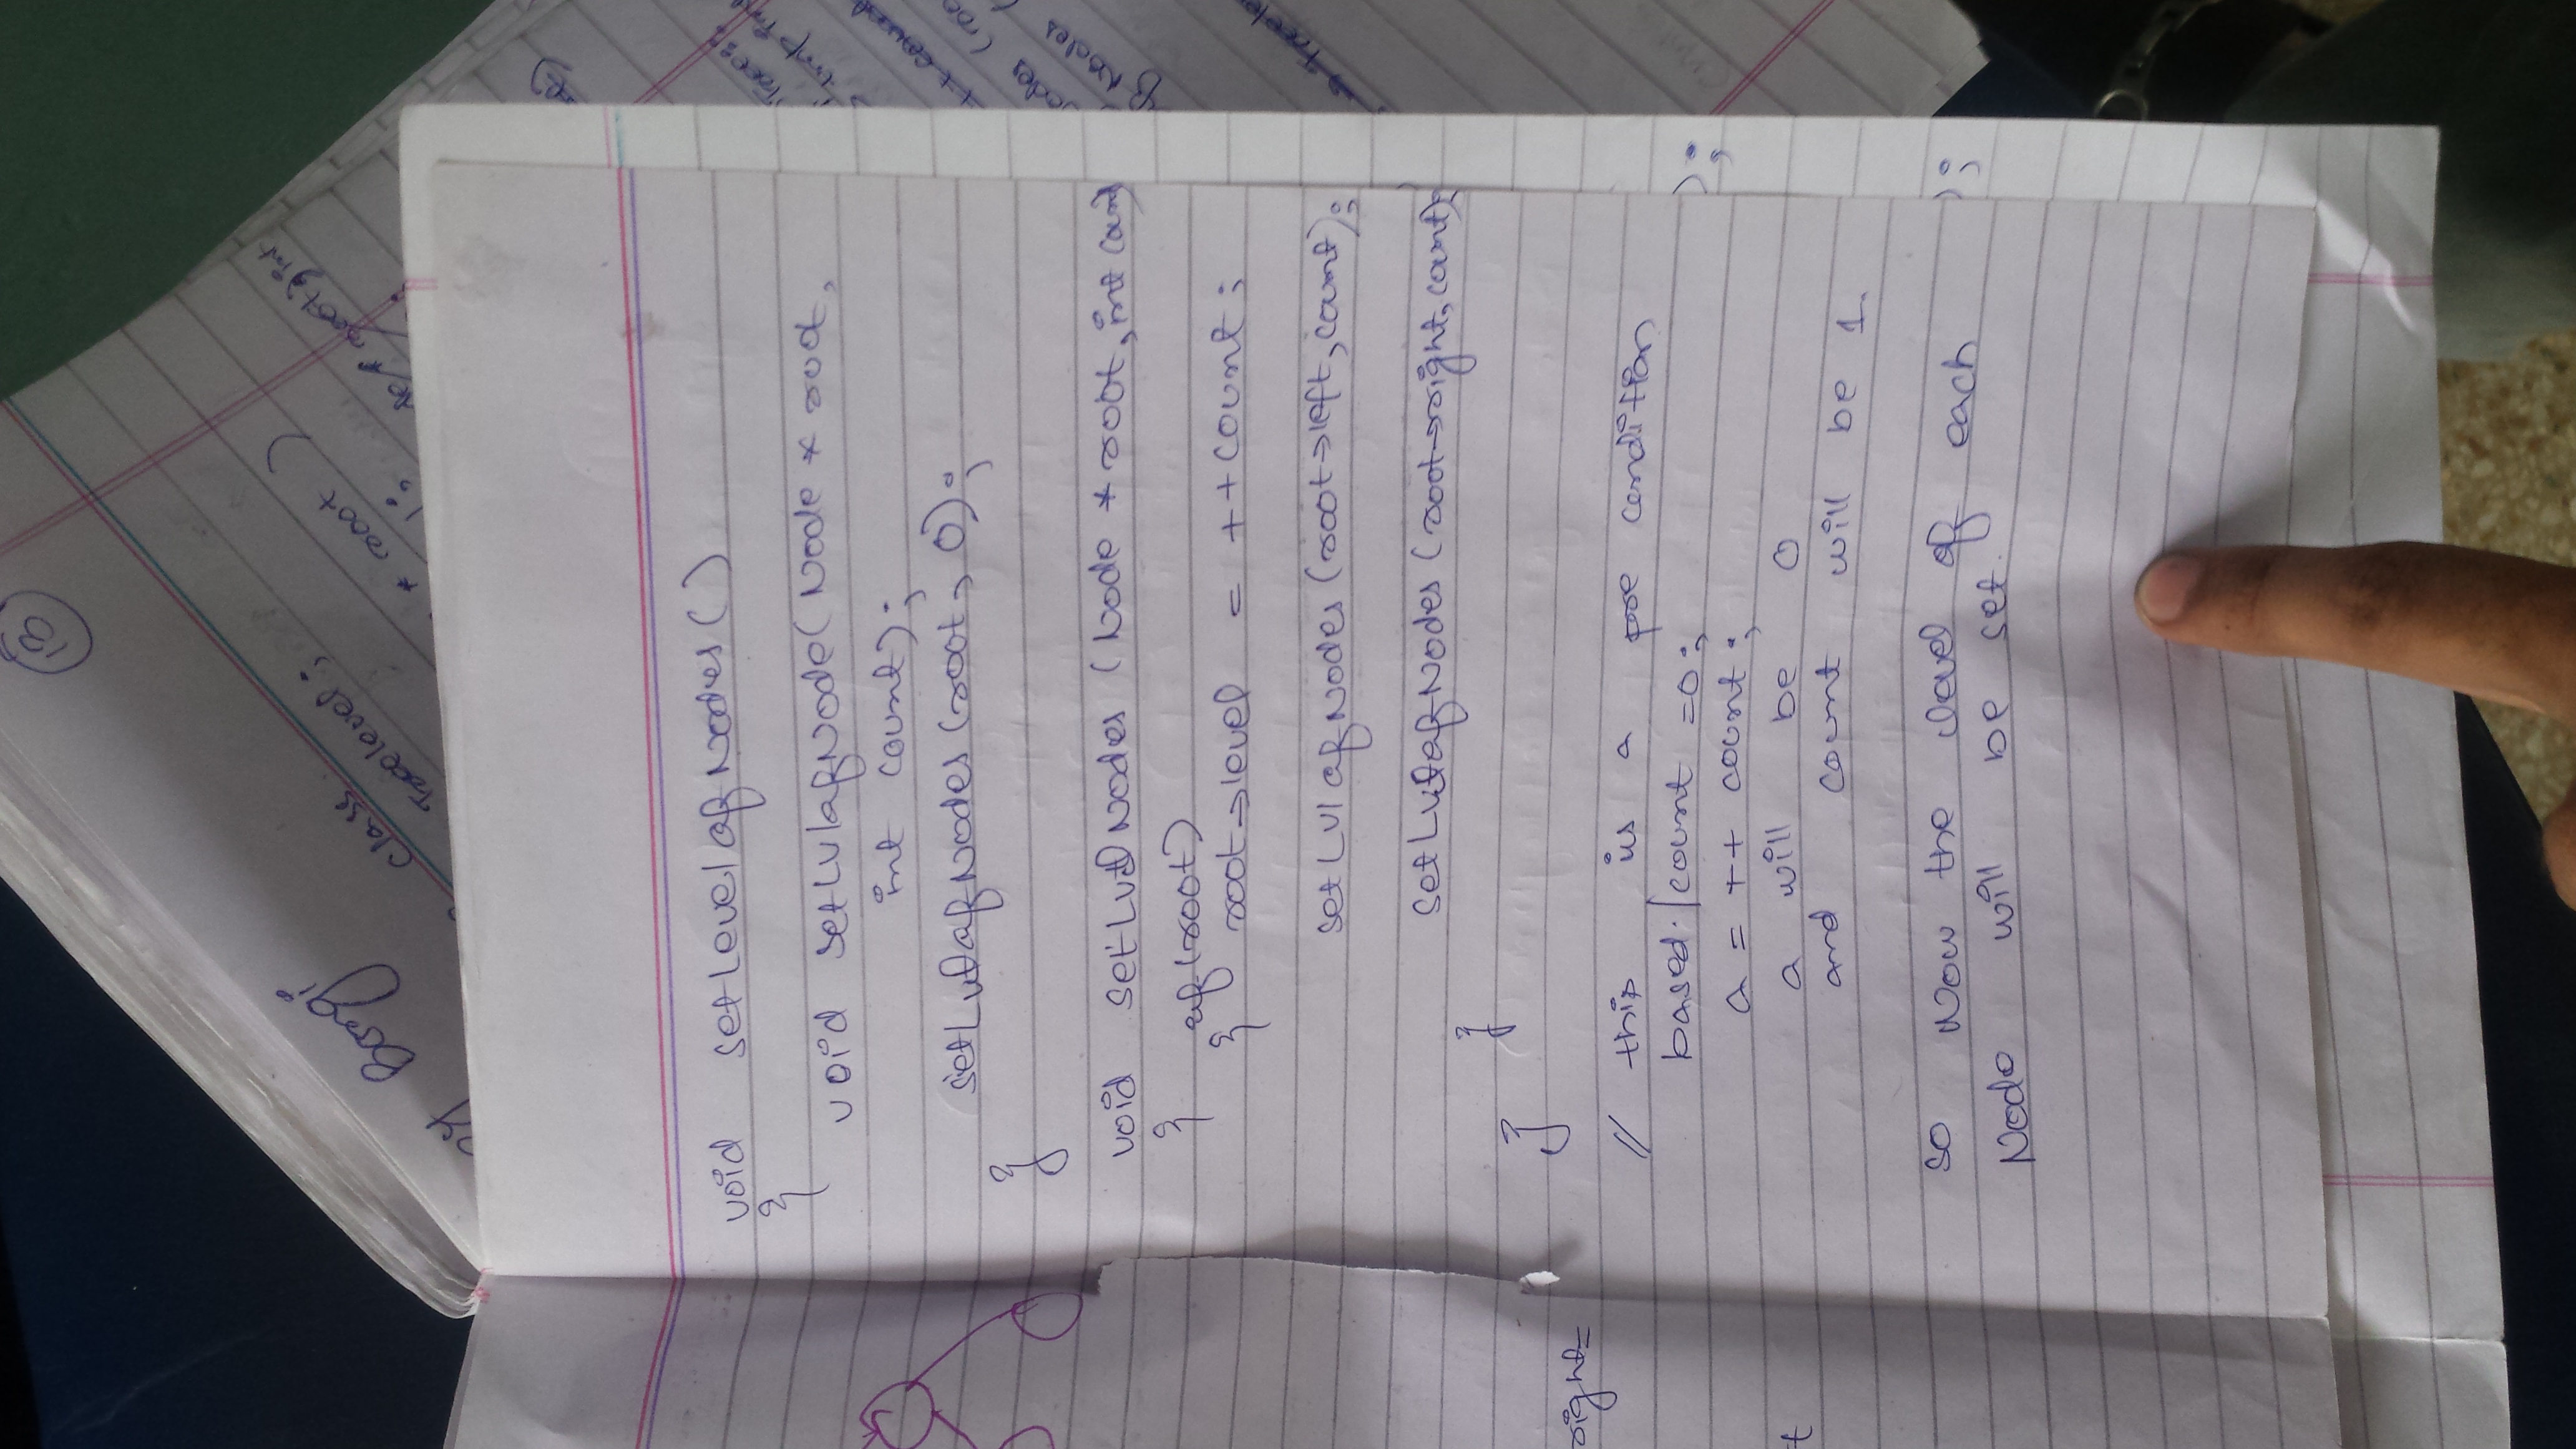 13
Bongi
class
Treelevel;
* root )
root, int
void setLevelofNodes()
{
void setLvlofNode(Node * root,
int count);
setLvlofNodes(root, 0);
}
void setLvlNodes (Node * root, int count)
{ if(root)
{ root->level = ++count;
setLvlofNodes(root->left, count);
setLvlofNodes(root->right, count);
}
}
// this is a pre condition
based. / count =0;
a = ++ count;
a will be 0
and count will be 1.
so Now the level of each
Node will be set.
right=
t
);
);